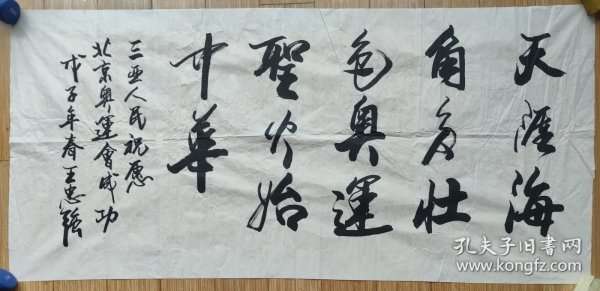 天涯海
角多壮
色奥運
聖火始
中華
三亚人民祝愿
北京奥運會成功
戊子年春王忠强
孔夫子旧书网
www.kongfz.com